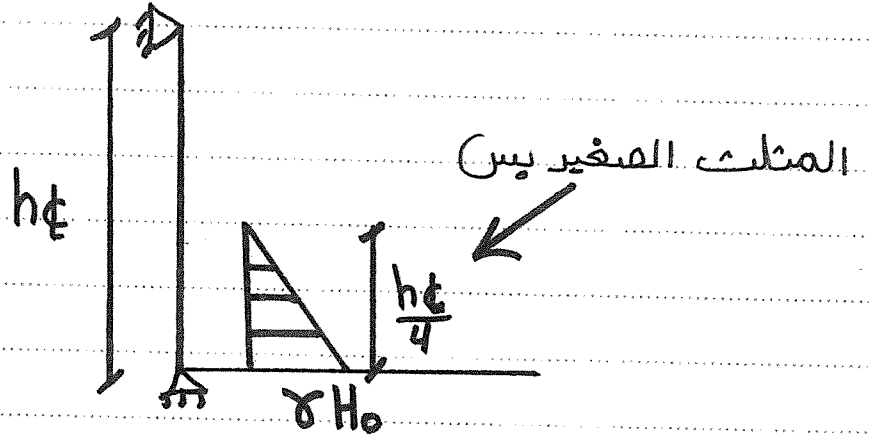 المثلث الصغير بس
h℄
h℄/4
γH₀